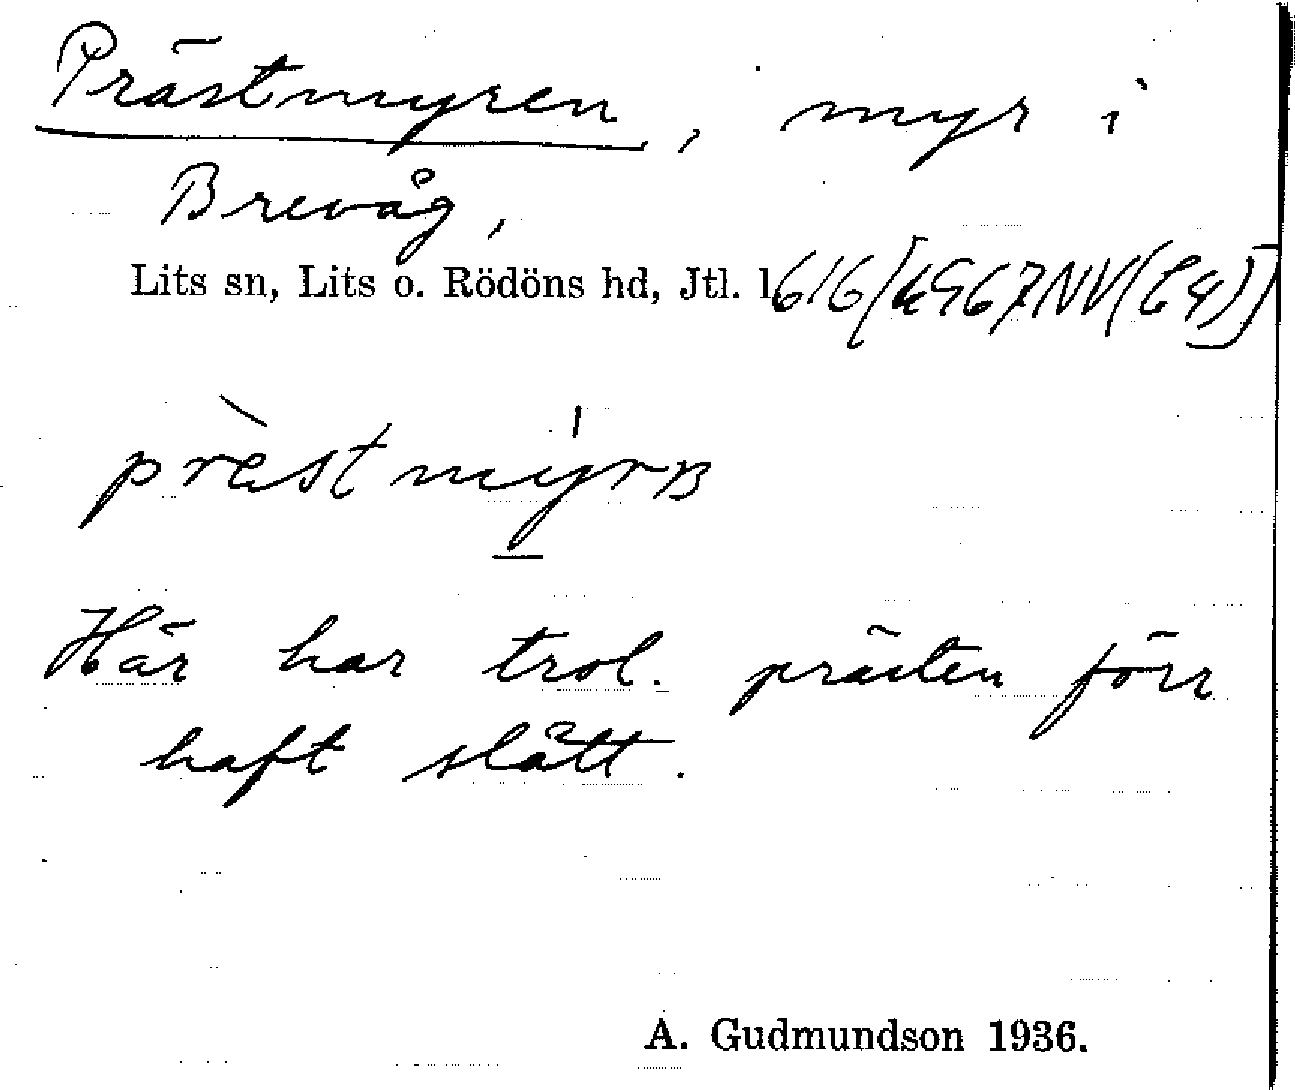 Prästmyren, myr i
Brevåg,
Lits sn, Lits o. Rödöns hd, Jtl. l.
Här har trol. prästen förr
haft slått.
A. Gudmundson 1936.